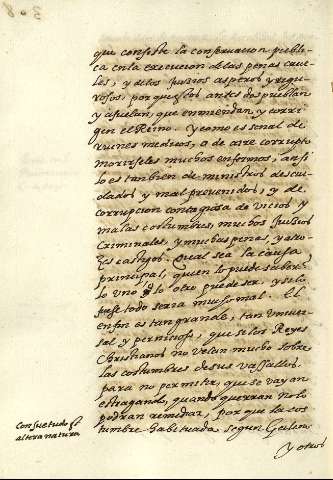 que consiste la conseruacion public
ca en la execucion de las penas crue
les, y de los Juyzios asperos y rigu
rosos. porque estos antes despueblan
y asuelan, que enmiendan, y corri
gen el Reino. Y como es señal de
ruines medicos, o de aire corrupto
morirseles muchos enfermos; ansi
lo es tanbien de ministros descui
dados y mal preuenidos, y de
corrupcion contagiosa de vicios y
malas costumbres, muchos Juyzios
Criminales, y muchas penas, y atro
zes castigos. Qual sea la causa
principal, quien lo puede saber,
lo uno o lo otro puede ser, y si lo
fuese todo seria mui mal. El
enfon es tan grande, tan vniuer
sal y perniciosa, que si los Reyes
Christianos no velan mucho sobre
las costumbres de sus vasallos.
para no permitir, que se vayan
estragando, quando querran no lo
podran remediar; por que la cos
tumbre habituada segun Galeno
Consuetudo est
altera natura
y otros